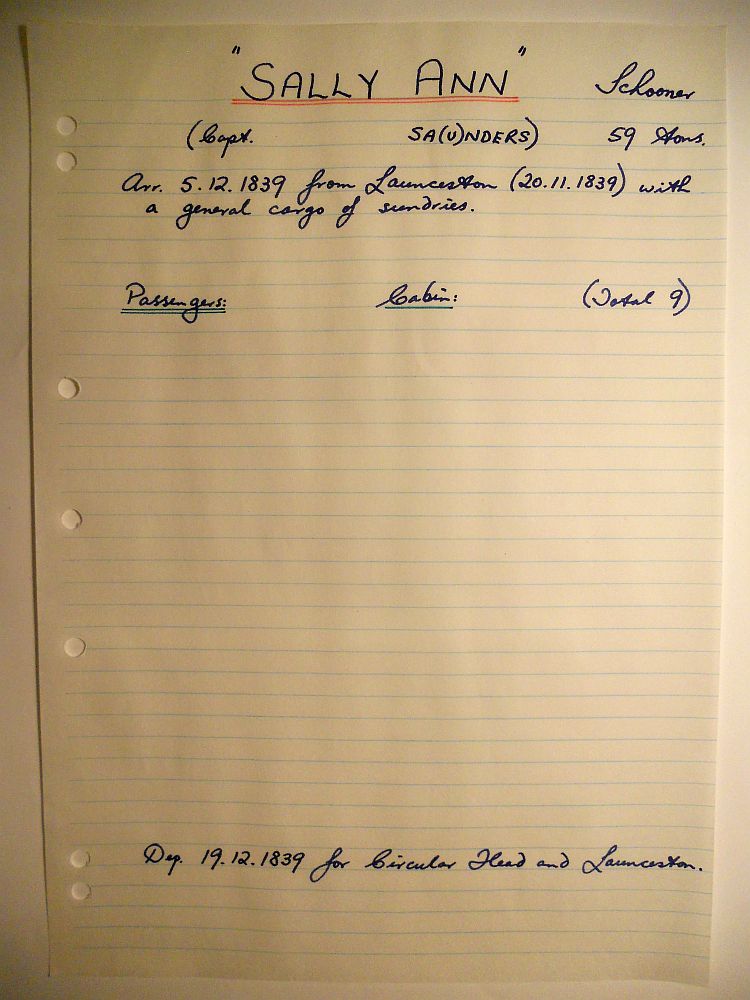 "SALLY ANN" Schooner
(Capt. SA(U)NDERS) 59 tons.
Arr. 5.12.1839 from Launceston (20.11.1839) with
a general cargo of sundries.
Passengers: Cabin: (Total 9)
Dep. 19.12.1839 for Circular Head and Launceston.